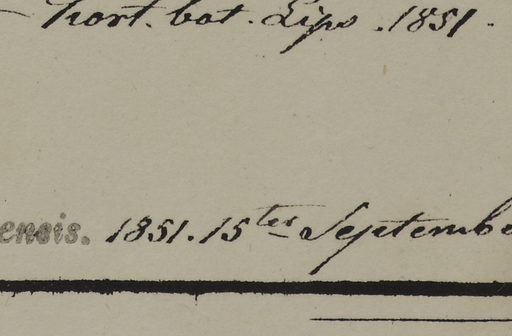 hort. bot. Lips. 1851.
ensis. 1851. 15ter Septembe